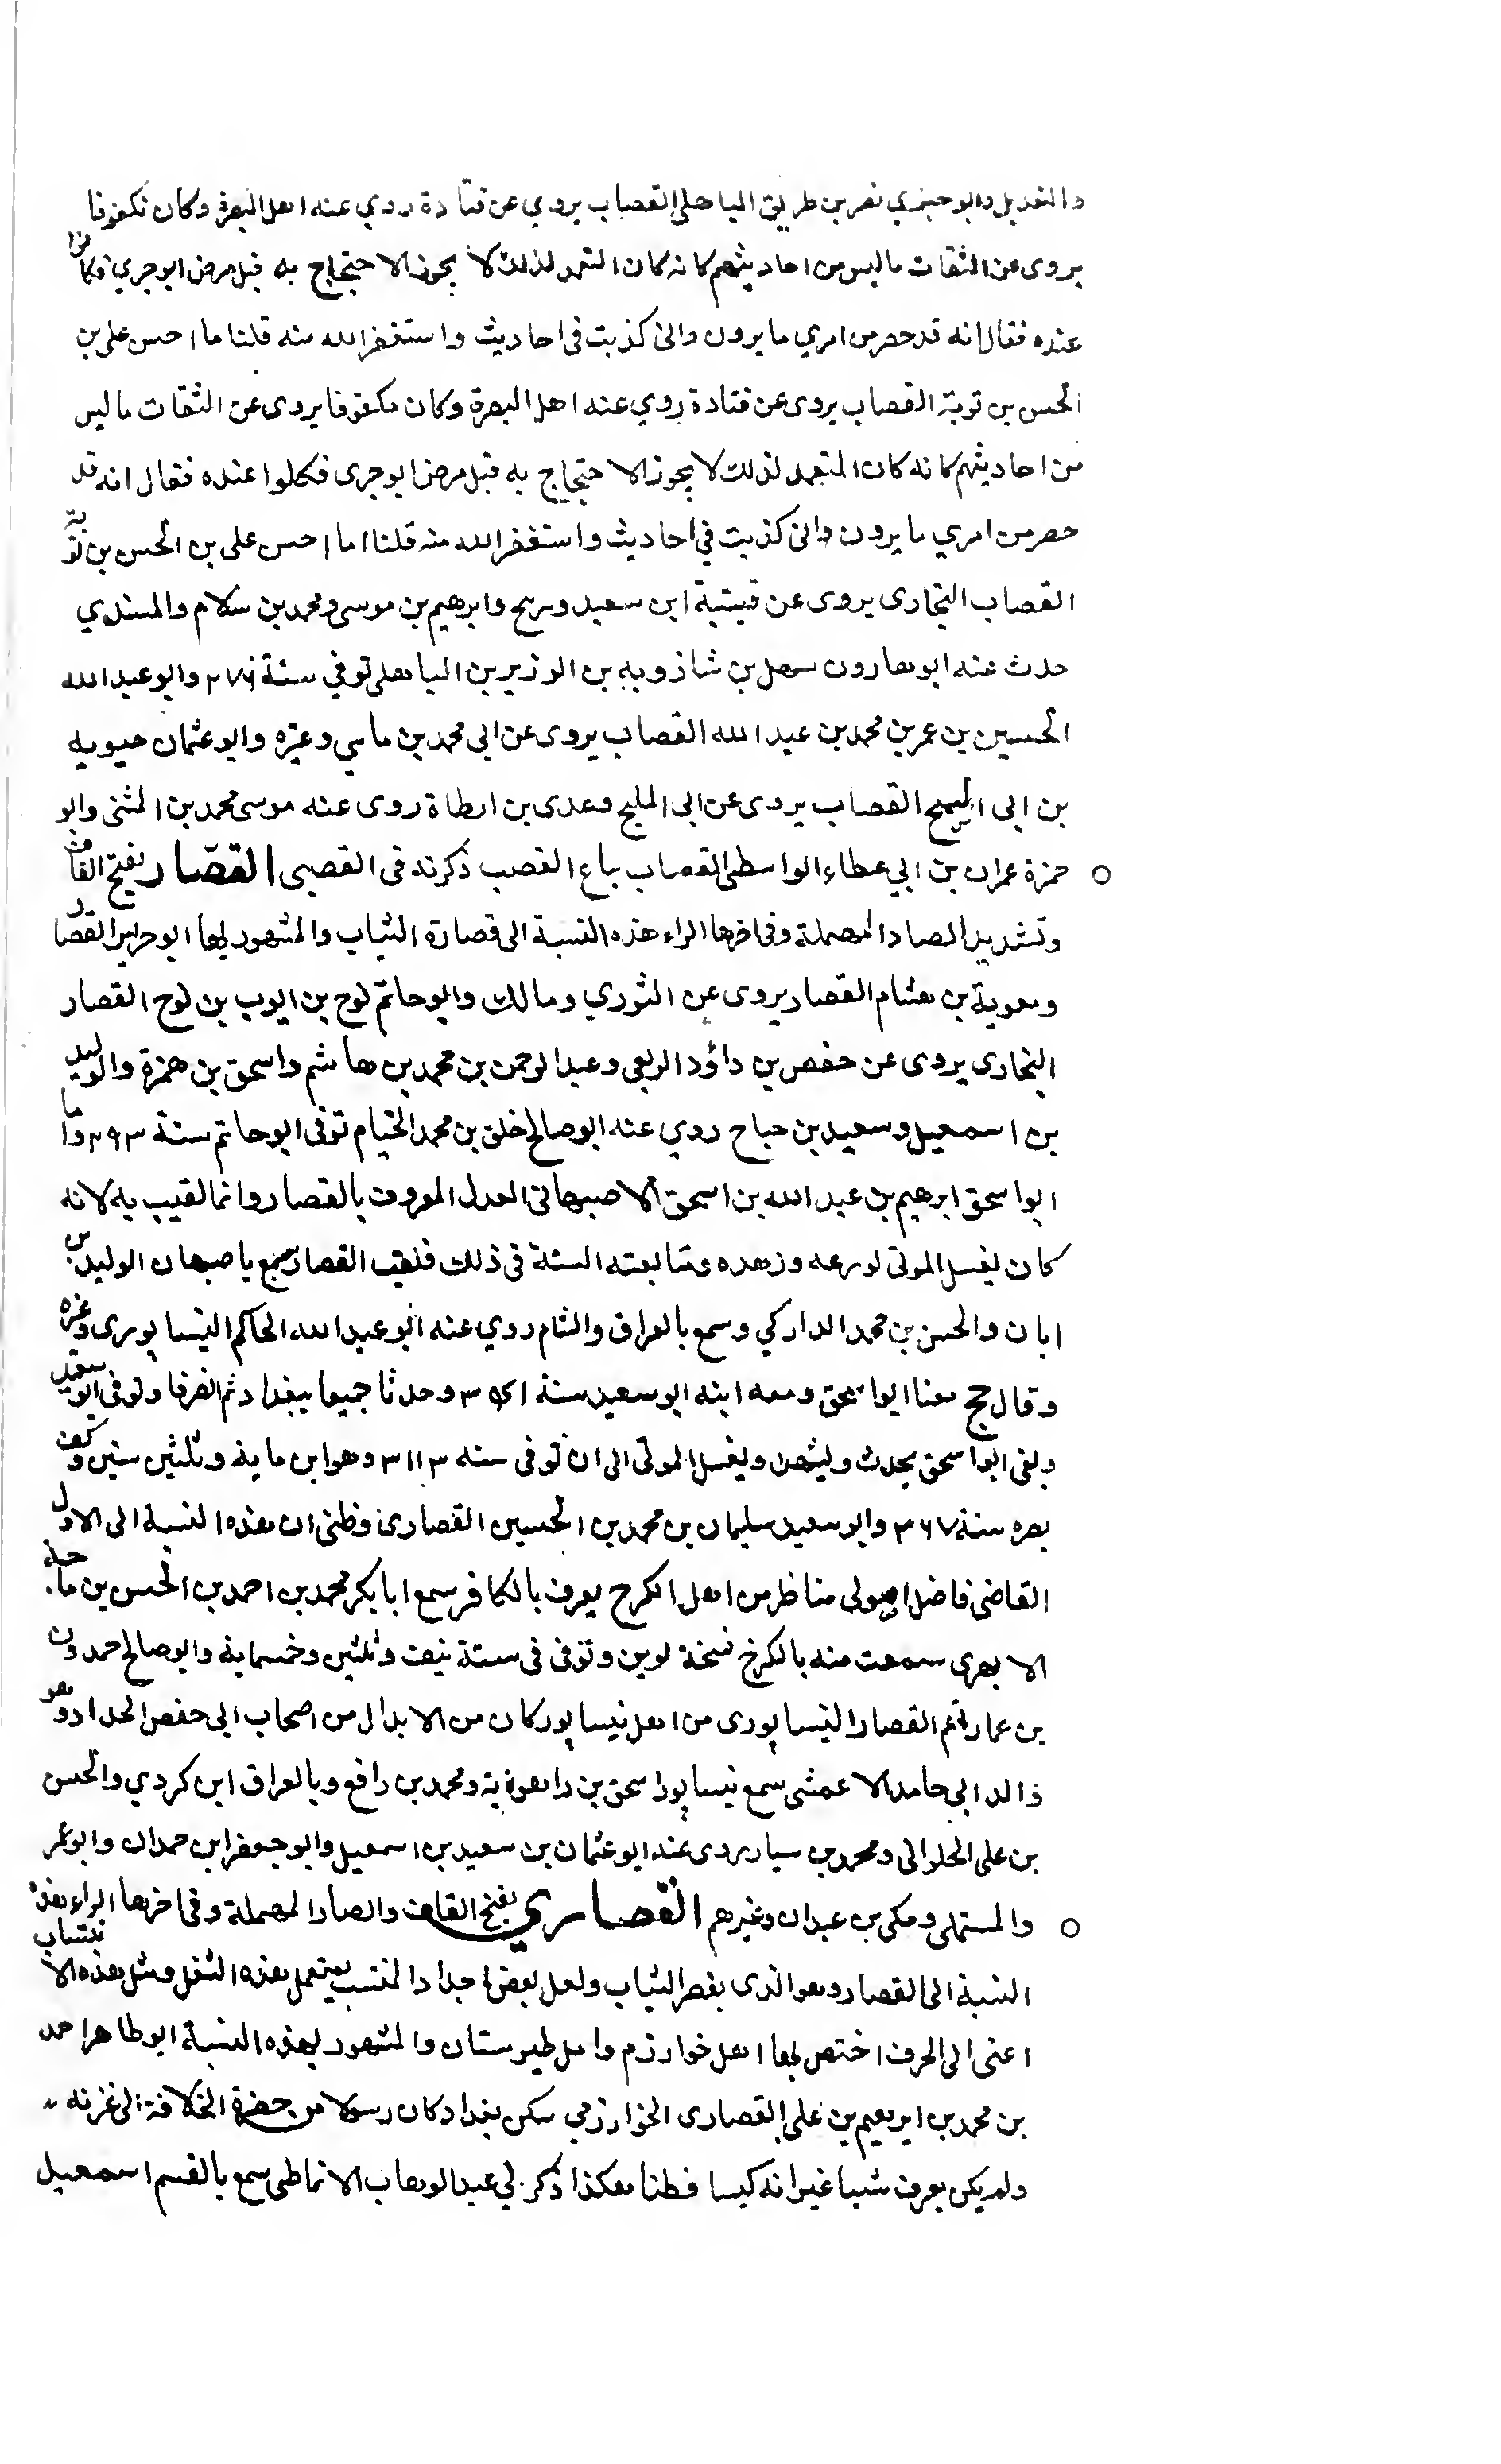 دا التعديل وابو حيزي نصر بن طريق الباهلى القصاب يروي عن قتادة روي عنه اهل البصرة وكان مكفوفا
يروى عن الثقات ما ليس من احاديثهم كانه كان التعمد لذلك لا يجوز الا حتجاج به قيل مرض ابو جري فكانوا
عنده فقال انه قد حصر من امري ما يرون وانى كذبت فى احاديث واستغفر الله منه قلنا ما احسن على بن
الحسن بن توبة القصاب يروى عن قتادة روي عنه اهل البصرة وكان مكفوفا يروى عن الثقات ما ليس
من احاديثهم كانه كان المتعمد لذلك لا يجوز الا حتجاج به قيل مرض ابو جرى فكلوا عنده فقال انه قد
حصر من امري ما يرون وانى كذبت في احاديث واستغفر الله منه قلنا اما احسن على بن الحسن بن توبة
القصاب البخارى يروى عن قيتبة ابن سعيد وسريح وابرهيم بن موسى ومحمد بن سلام والمسندي
حدث عنه ابو هارون سهل بن شاذويه بن الوزير بن الباهلى توفي سنة ٢٧٦ وابو عبد الله
الحسين بن عمر بن محمد بن عبد الله القصاب يروى عن ابى محمد بن ماسي وغيره وابو عثمان حيويه
بن ابى السميح القصاب يروى عن ابى المليح وعدى بن ارطاة روى عنه موسى محمد بن المثنى وابو
حمزة عمران بن ابي عطاء الواسطى القصاب باع القصب ذكرته فى القصبى القصّار بفتح القاف
وتشديد الصاد المهملة وفى اخرها الراء هذه النسبة الى قصارة الثياب والمشهور بها ابو حريز القصار
ومعوية بن هشام القصار يروى عن الثوري ومالك وابو حاتم نوح بن ايوب بن نوح القصار
البخارى يروى عن حفص بن داؤد الربعى وعبد الرحمن بن محمد بن هاشم واسحق بن حمزة والوليد
بن اسمعيل وسعيد بن جناح روي عنه ابو صالح خلق بن محمد الخيام توفى ابو حاتم سنة ٢٩٣ واما
ابو اسحق ابرهيم بن عبد الله بن اسحق الاصبهانى العدل المعروف بالقصار وانما لقيب به لانه
كان يغسل الموتى لورعه وزهده ومتابعته السنة فى ذلك فلقب القصار سمع باصبهان الوليد بن
ابان والحسن بن محمد الداركي وسمع بالعراق والشام روي عنه ابو عبد الله الحاكم النيسابورى وغيره
وقال حج معنا ابو اسحق ومعه ابنه ابو سعيد سنة ٣٤١ وحدثا جميعا ببغداد ثم انصرفا وتوفى ابو سعيد
وبقى ابو اسحق يحدث ويشهد ويغسل الموتى الى ان توفى سنه ٣١١٣ وهو ابن ماية وثلثين سنين وكف
بصره سنة ٣٦٧ وابو سعيد سليمان بن محمد بن الحسين القصارى وظنى ان هذه النسبة الى الاول
القاضى فاضل اصولى مناظر من اهل الكرج يعرف بالكافر سمع ابا بكر محمد بن احمد بن الحسن بن ماجة
الابهرى سمعت منه بالكرخ نسخة لوين وتوفى فى سنة نيف وثلثين وخمساية وابو صالح حمدون
بن عمارة القصار النيسابورى من اهل نيسابور كان من الابدال من اصحاب ابى حفص الحداد وهو
ذالد ابى حامد الاعمشى سمع نيسابور اسحق بن راهوية ومحمد بن رافع وبالعراق ابن كردي والحسن
بن على الحلوانى ومحمد بن سيار روى عنه ابو عثمان بن سعيد بن اسمعيل وابو جعفر ابن حمدان وابو عمر
والمستملى ومكى بن عبدان وغيرهم القصاري بفتح القاف والصاد المهملة وفى اخرها الراء هذه
النسبة الى القصار وهو الذى يقصر الثياب ولعل بعض اجداد المنتسب يعمل هذه الشغل ومثل هذه الانتساب
اعنى الى الحرف اختص بها اهل خوارزم وامل طبرستان والمشهور بهذه النسبة ابو طاهر احمد
بن محمد بن ابرهيم بن على القصارى الخوارزمي سكن بغداد كان رسولا من حضرة الخلافة الى غزنه
ولم يكن يعرف شيا غير انه كيسا فطنا هكذا ذكر لي عبد الوهاب الانماطى سمع بالقسم اسمعيل